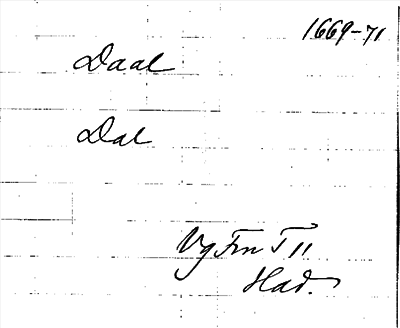 1669-71
Daal
Dal
Vg Fm T 11
Had.